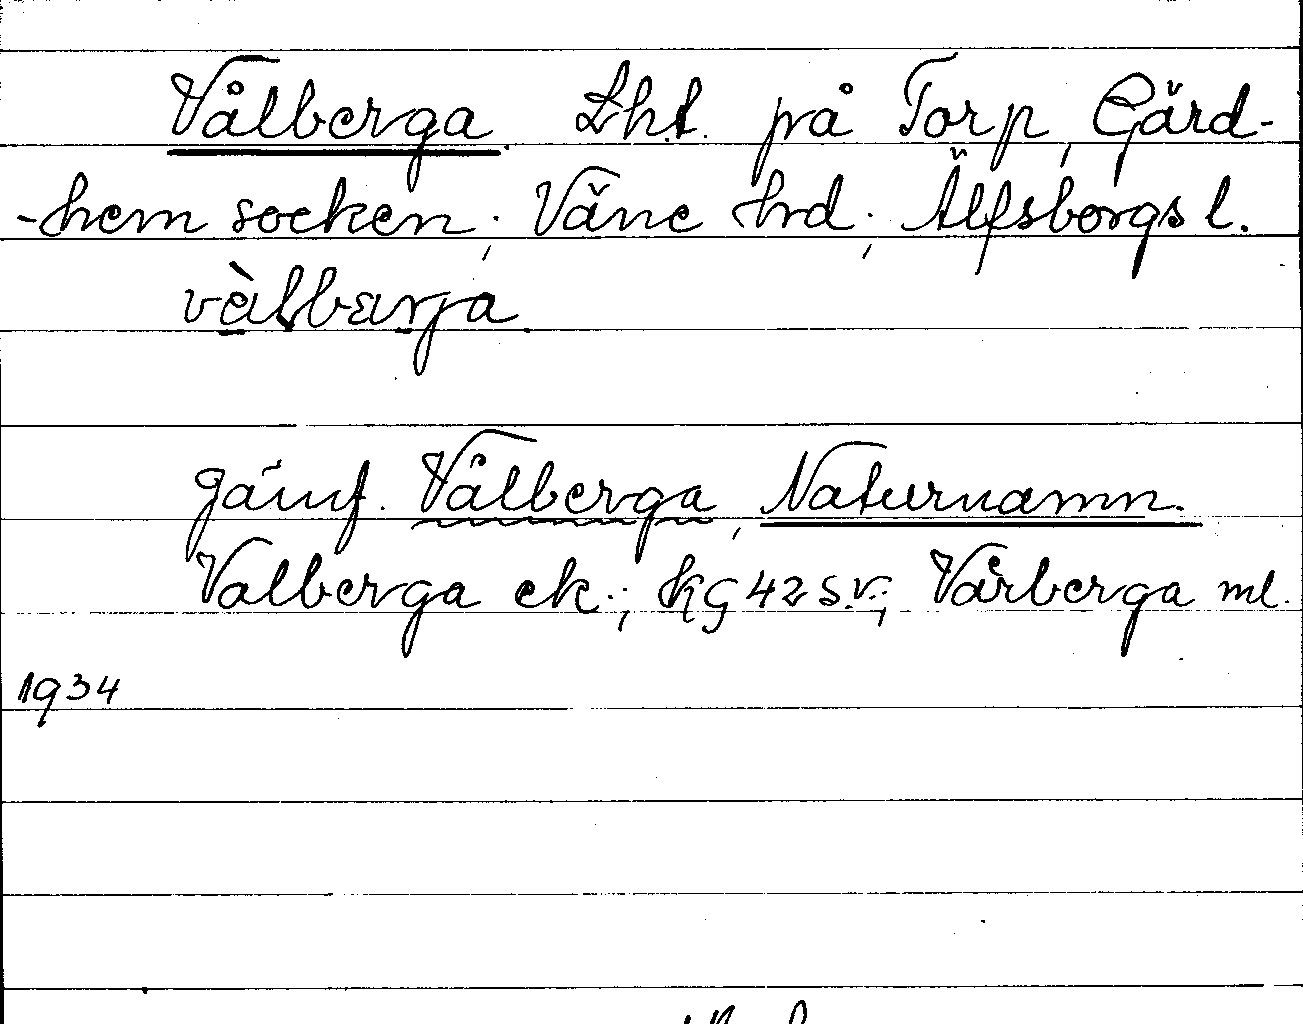 Vålberga. Lht. på Torp, Gärd-
-hem socken; Väne hrd; Älfsborgs l.
vàlbarja
jämf. Vålberga, Naturnamn.
Valberga ek.; KG 42 s.v.; Vårberga ml.
1934